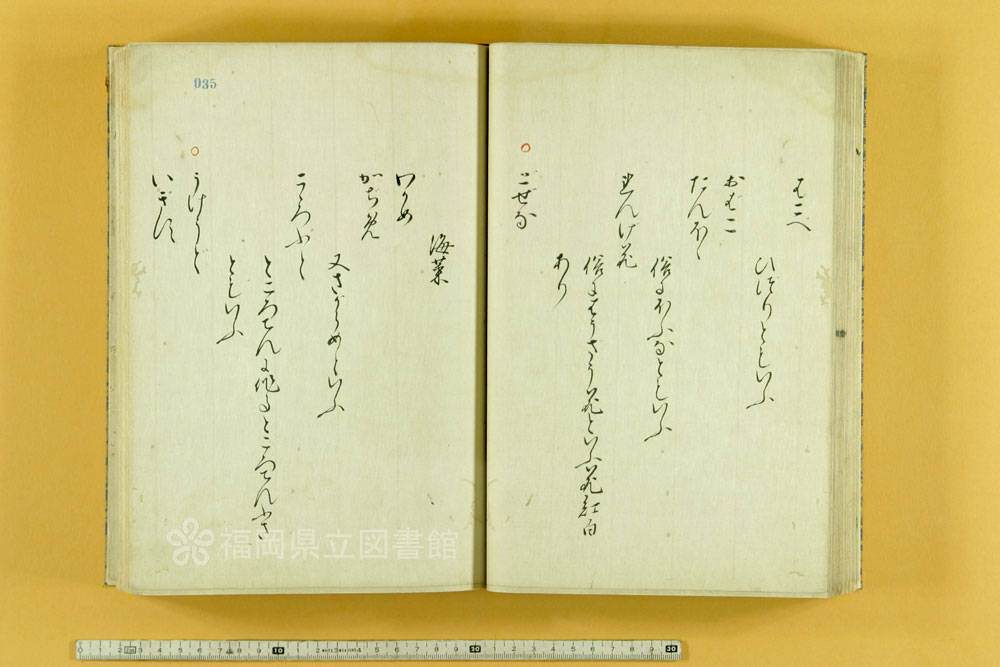 はこべ
ひづりともいふ
おばこ
たんほゝ
俗にほふなともいふ
れんげ花
俗にはうさう花といふ花紅白
あり
ごぜな
海菜
わかめ
かぢめ
又さがらめといふ
ところてんに作るところてんぐさ
ともいふ
うけうど
いぎす
035
福岡県立図書館